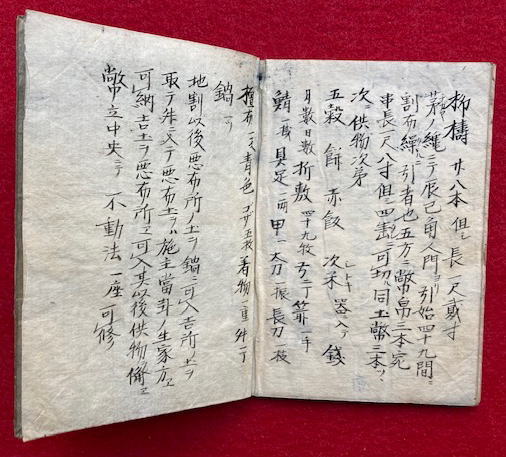 廿八本 但シ 長一尺貳寸
茅ノ縄ニテ辰巳角人門ヨリ引始四十九間ニ
割布繰ニ引者也五方ニ幣帛三本宛
串長一尺八寸但シ四ニ可切同土幣三本ツヽ
次ニ供物次第
五穀 餅 赤飯 次米 器入テ 錢
月數日數折敷四十九枚弓一丁箭一手
鯖一 具足一両 甲一 太刀一振 長刀一枝
檀布一丈青色 ゴザ五枚 着物一重 舛一丁
鍋一ツ
地割以後悪布所ノ土ヲ鍋ニ可入吉所ノ土ヲ
取テ舛ニ入テ悪布土ヲハ施主當卦ノ生家方ニ
可納吉土ヲ悪布ノ所ニ可入其以後供物備ヘ
幣立中央ニテ 不動法一座可修